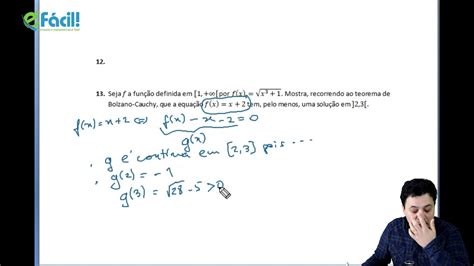 Fácil!
12.
13. Seja f a função definida em [1, +∞[ por f(x) = √x³ + 1. Mostra, recorrendo ao teorema de
Bolzano-Cauchy, que a equação f(x) = x + 2 tem, pelo menos, uma solução em ]2,3[.
f(x) = x+2 ⇔ f(x) - x - 2 = 0
g(x)
g é contínua em [2,3] pois ...
g(2) = -1
g(3) = √28 - 5 > 0